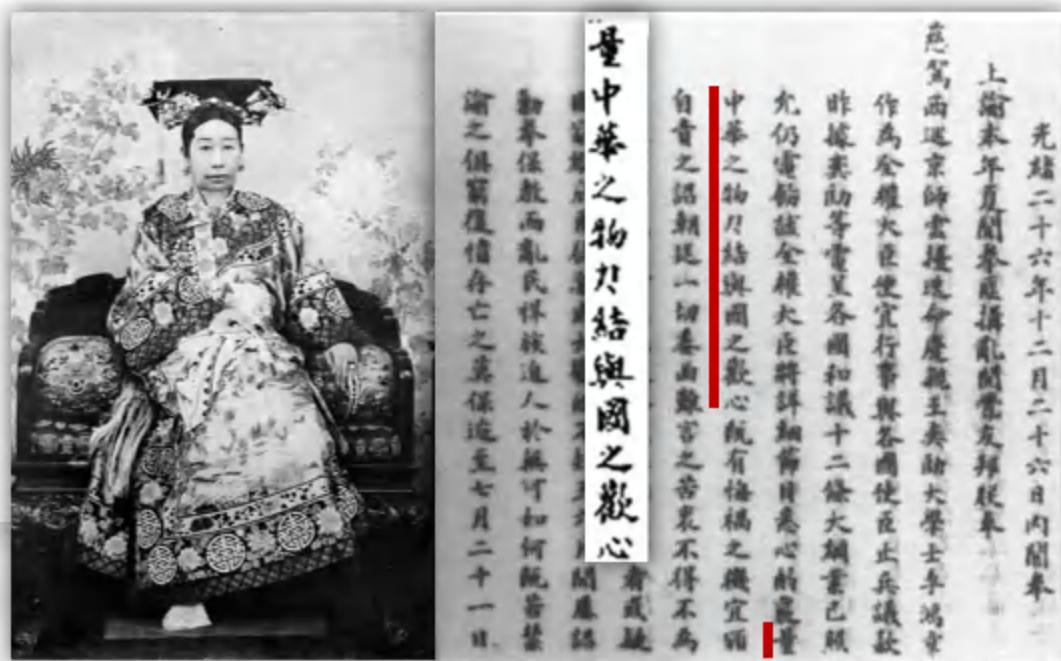 光緒二十六年十二月二十六日內閣奉
上諭本年夏間拳匪搆亂開釁友邦朕奉
慈駕西巡京師雲擾迭命慶親王奕劻大學士李鴻章
作為全權大臣便宜行事與各國使臣止兵議款
昨據奕劻等電呈各國和議十二條大綱業已照
允仍電飭該全權大臣將詳細節目悉心酌覈量
中華之物力結與國之歡心既有悔禍之機宜頒
自責之詔朝廷一切委曲難言之苦衷不得不為
量中華之物力結與國之歡心
者或疑
間屢詔
勦拳保教而亂民悍族迫人於無可如何既苦禁
諭之俱窮復憤存亡之莫保迨至七月二十一日